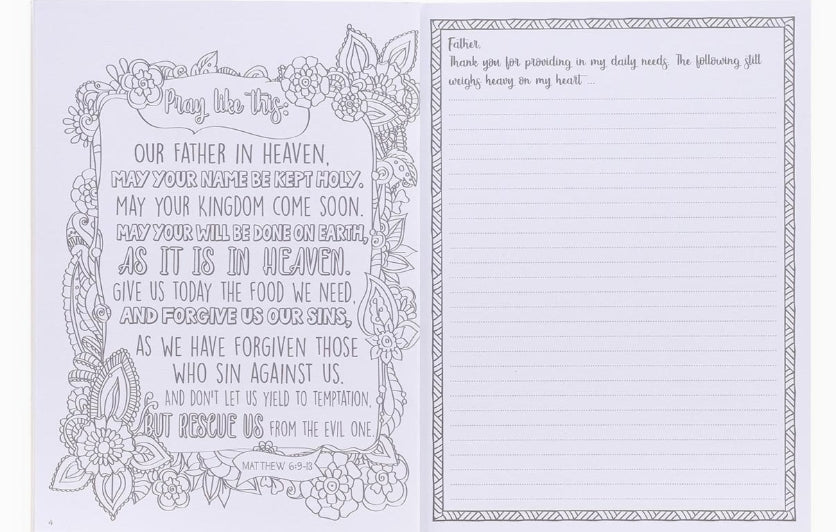 Pray like this:
OUR FATHER IN HEAVEN,
MAY YOUR NAME BE KEPT HOLY.
MAY YOUR KINGDOM COME SOON.
MAY YOUR WILL BE DONE ON EARTH,
AS IT IS IN HEAVEN.
GIVE US TODAY THE FOOD WE NEED,
AND FORGIVE US OUR SINS,
AS WE HAVE FORGIVEN THOSE
WHO SIN AGAINST US.
AND DON'T LET US YIELD TO TEMPTATION,
BUT RESCUE US FROM THE EVIL ONE.
MATTHEW 6:9-13
4
Father,
Thank you for providing in my daily needs. The following still
weighs heavy on my heart ...